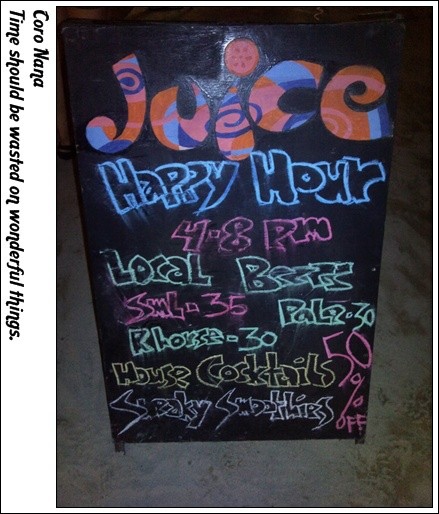 Coro Nana
Time should be wasted on wonderful things.
Juice
Happy Hour
4-8 PM
Local Beers
SML-35 Pale-30
Rhorse-30
House Cocktails
Sneaky Smoothies
50% OFF